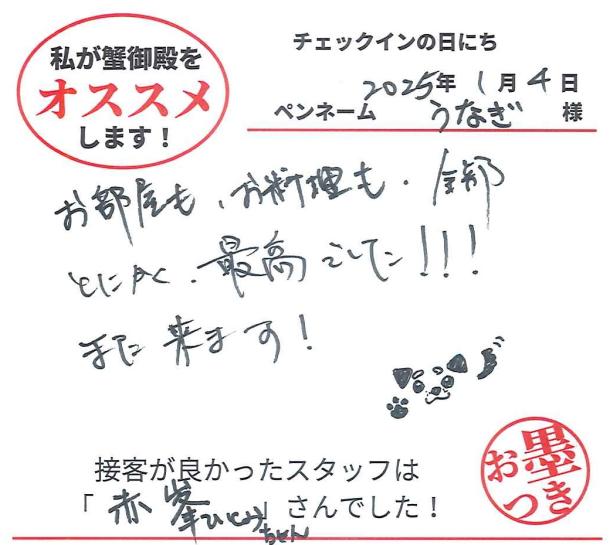 私が蟹御殿を
オススメ
します!
チェックインの日にち
2025年1月4日
ペンネーム うなぎ 様
お部屋も、お料理も、全部
とにかく、最高でした!!!
また来ます!
接客が良かったスタッフは
「赤峯 さんでした!
お墨つき